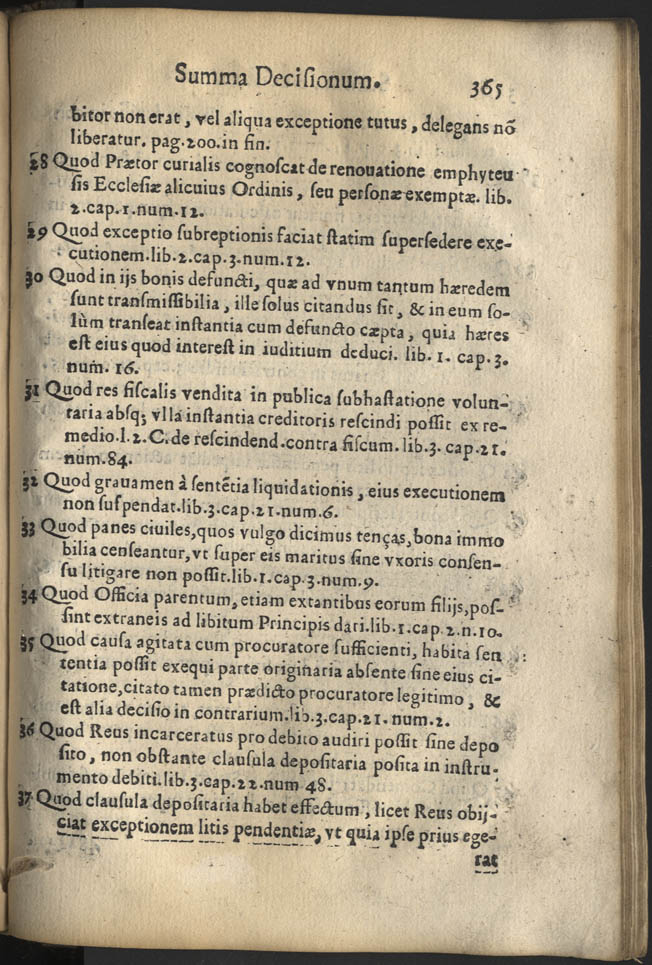 Summa Deciſionum. 365
bitor non erat, vel aliqua exceptione tutus, delegans nõ
liberatur. pag.200.in fin.
28 Quod Prætor curialis cognoſcat de renouatione emphyteu
ſis Eccleſiæ alicuius Ordinis, ſeu perſonæ exemptæ. lib.
2.cap.1.num.12.
29 Quod exceptio ſubreptionis faciat ſtatim ſuperſedere exe-
cutionem.lib.2.cap.3.num.12.
30 Quod in ijs bonis defuncti, quæ ad vnum tantum hæredem
ſunt tranſmiſſibilia, ille ſolus citandus ſit, & in eum ſo-
lùm tranſeat inſtantia cum defuncto cæpta, quia hæres
eſt eius quod intereſt in iuditium deduci. lib. 1. cap.3.
num. 16.
31 Quod res fiſcalis vendita in publica ſubhaſtatione volun-
taria abſq; vlla inſtantia creditoris reſcindi poſſit ex re-
medio.l.2.C.de reſcindend.contra fiſcum.lib.3.cap.21.
num.84.
32 Quod grauamen à ſentẽtia liquidationis, eius executionem
non ſuſpendat.lib.3.cap.21.num.6.
33 Quod panes ciuiles,quos vulgo dicimus tenças,bona immo
bilia cenſeantur,vt ſuper eis maritus ſine vxoris conſen-
ſu litigare non poſſit.lib.1.cap.3.num.9.
34 Quod Officia parentum, etiam extantibus eorum filijs,poſ-
ſint extraneis ad libitum Principis dari.lib.1.cap.2.n.10.
35 Quod cauſa agitata cum procuratore ſufficienti, habita ſen
tentia poſſit exequi parte originaria abſente ſine eius ci-
tatione,citato tamen prædicto procuratore legitimo, &
eſt alia deciſio in contrarium.lib.3.cap.21.num.2.
36 Quod Reus incarceratus pro debito audiri poſſit ſine depo
ſito, non obſtante clauſula depoſitaria poſita in inſtru-
mento debiti.lib.3.cap.22.num 48.
37 Quod clauſula depoſitaria habet effectum, licet Reus obij-
ciat exceptionem litis pendentiæ, vt quia ipſe prius ege-
rat